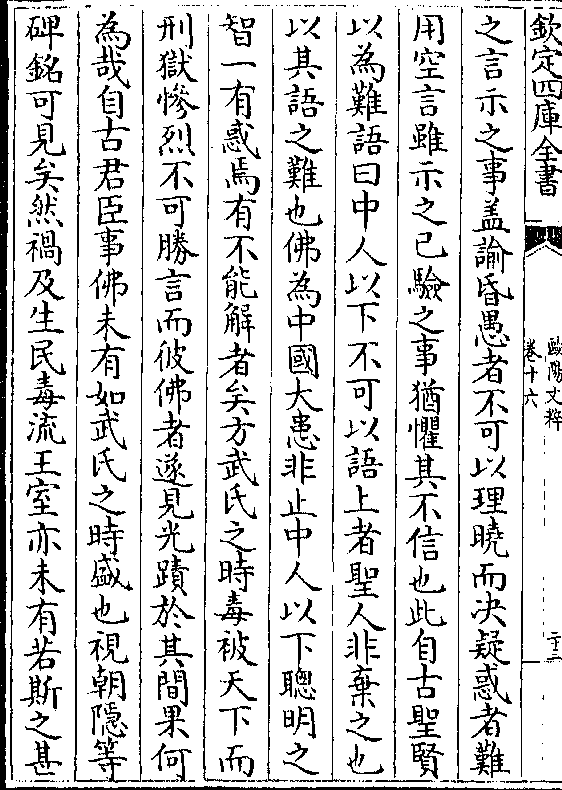 欽定四庫全書
歐陽文粹
卷十六
二十二
之言示之事盖諭昏愚者不可以理曉而决疑惑者難
用空言雖示之已驗之事猶懼其不信也此自古聖賢
以為難語曰中人以下不可以語上者聖人非棄之也
以其語之難也佛為中國大患非止中人以下聰明之
智一有惑焉有不能解者矣方武氏之時毒被天下而
刑獄慘烈不可勝言而彼佛者遂見光蹟於其間果何
為哉自古君臣事佛未有如武氏之時盛也視朝隱等
碑銘可見矣然禍及生民毒流王室亦未有若斯之甚